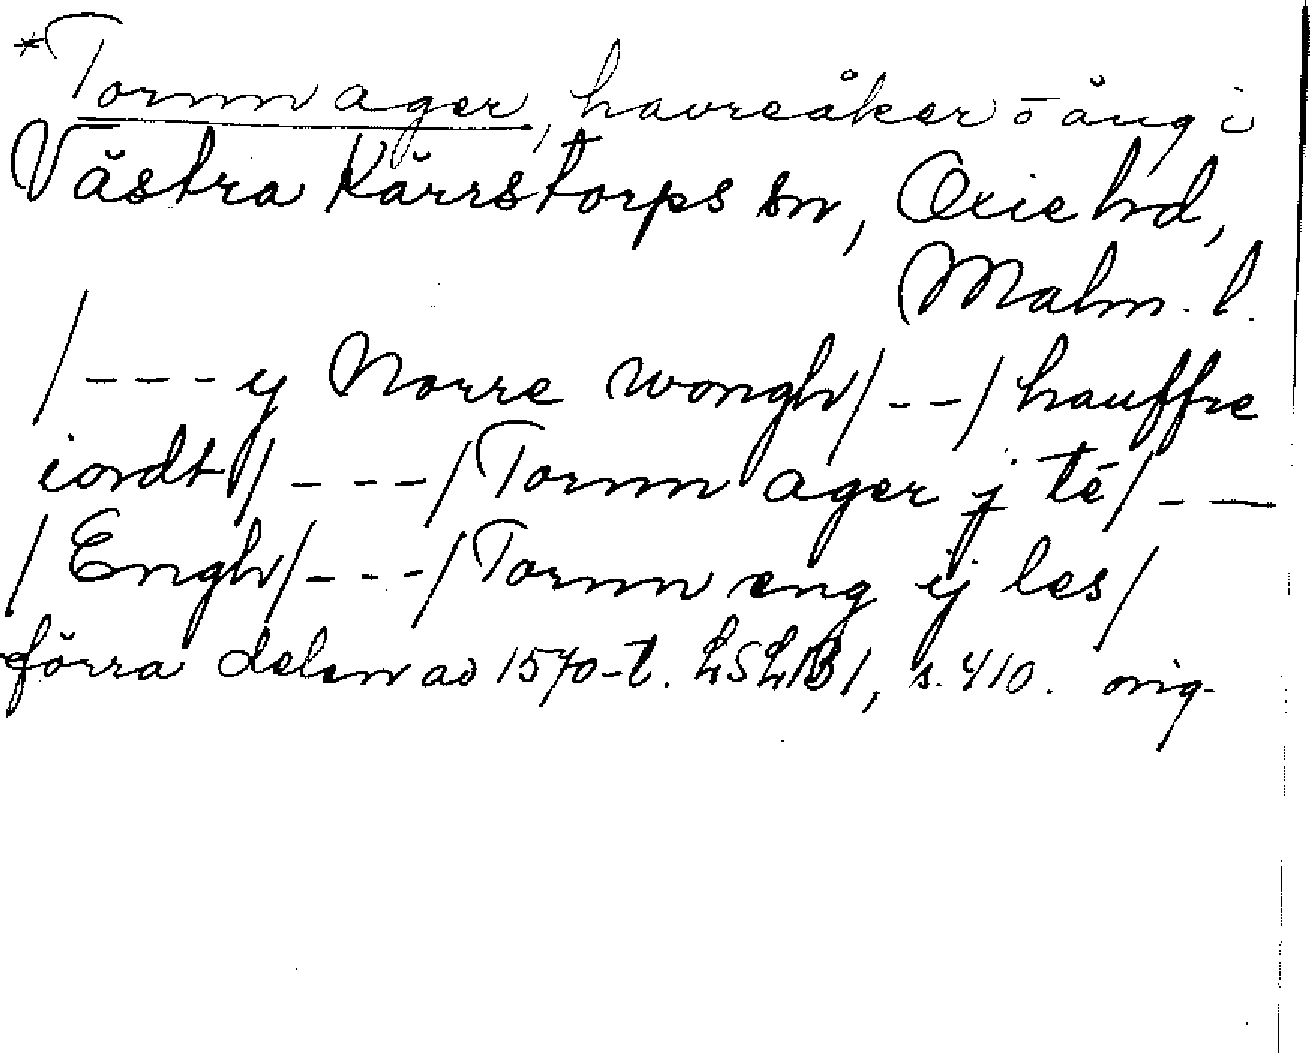 *Tornn ager, havreåker o äng i
Västra Kärrstorps sn, Oxie hd,
Malm. l.
/---y Norre wongh/--/hauffre
iordt/---/Tornn ager j te/---
/Engh/---/Tornn eng ij les/
förra delen av 1570-t. LSLB1, s. 410. orig.